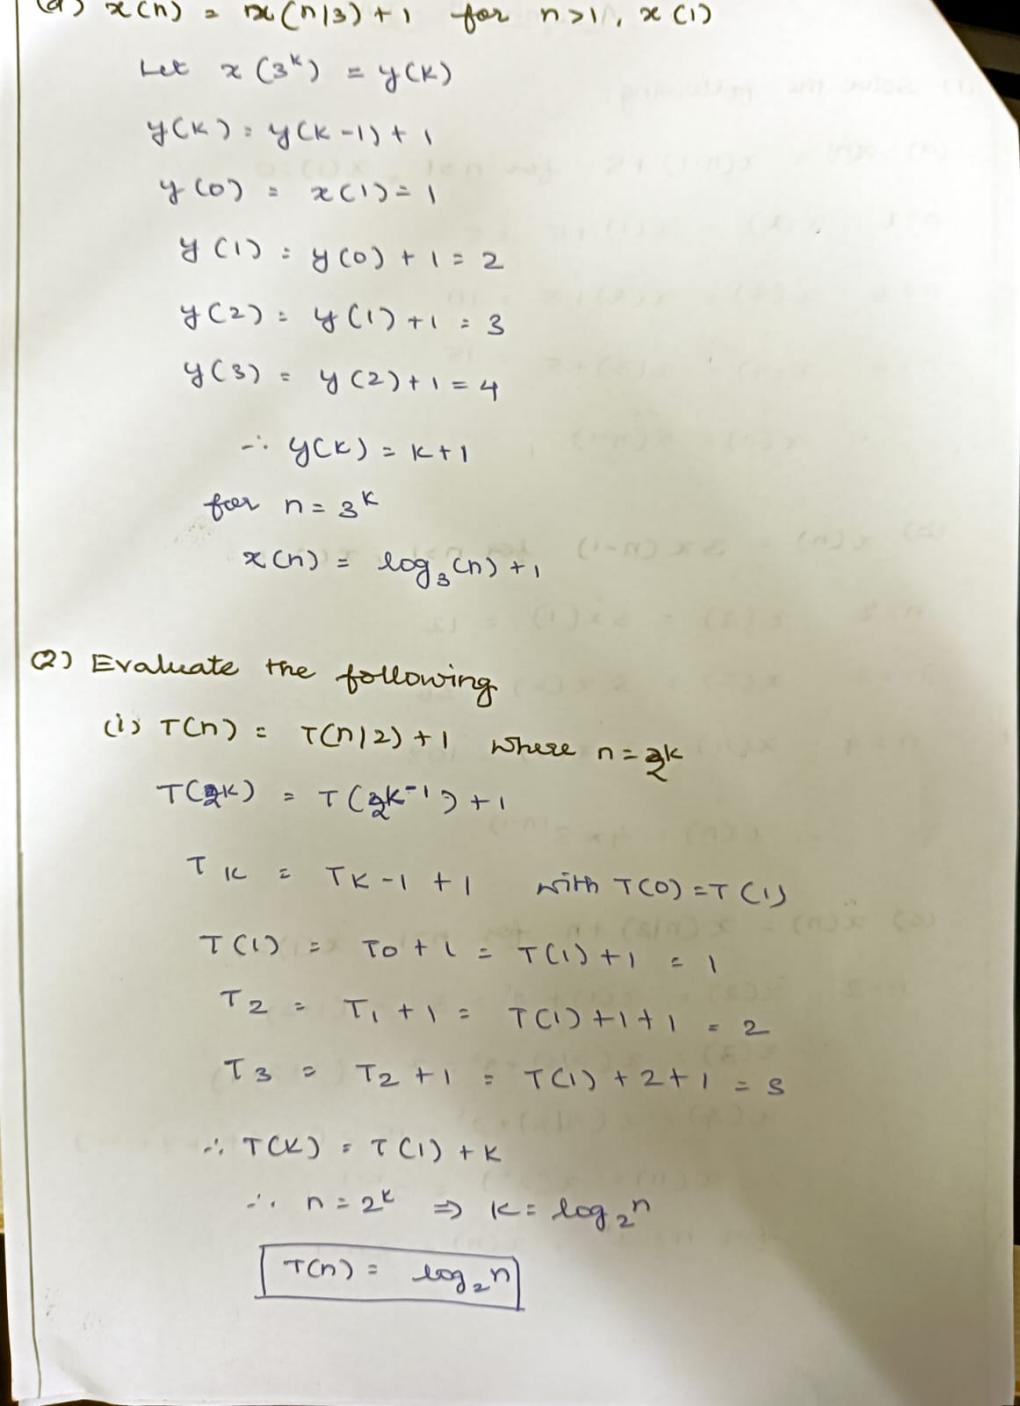 (d) x(n) = x(n/3) + 1 for n>1, x(1)
Let x(3^k) = y(k)
y(k) = y(k-1) + 1
y(0) = x(1) = 1
y(1) = y(0) + 1 = 2
y(2) = y(1) + 1 = 3
y(3) = y(2) + 1 = 4
∴ y(k) = k+1
for n = 3^k
x(n) = log₃(n) + 1
(2) Evaluate the following
(i) T(n) = T(n/2) + 1 where n = 2k
T(2k) = T(2k-1) + 1
Tk = Tk-1 + 1 with T(0) = T(1)
T(1) = T0 + 1 = T(1) + 1 = 1
T2 = T1 + 1 = T(1) + 1 + 1 = 2
T3 = T2 + 1 = T(1) + 2 + 1 = 3
∴ T(k) = T(1) + k
∴ n = 2^k ⇒ k = log₂n
T(n) = log₂n